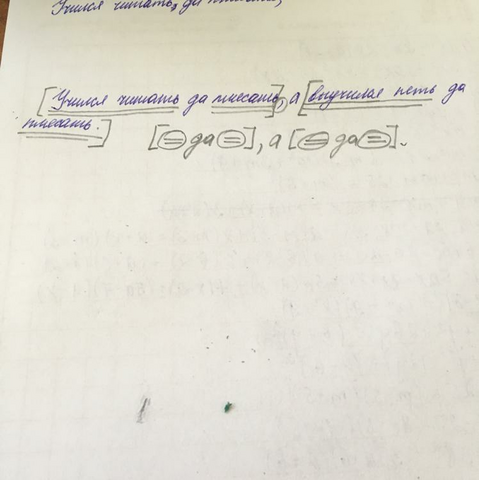 Учился читать, да писать,
[Учился читать да писать], а [выучился петь да
плясать.] [= да =], а [= да =].